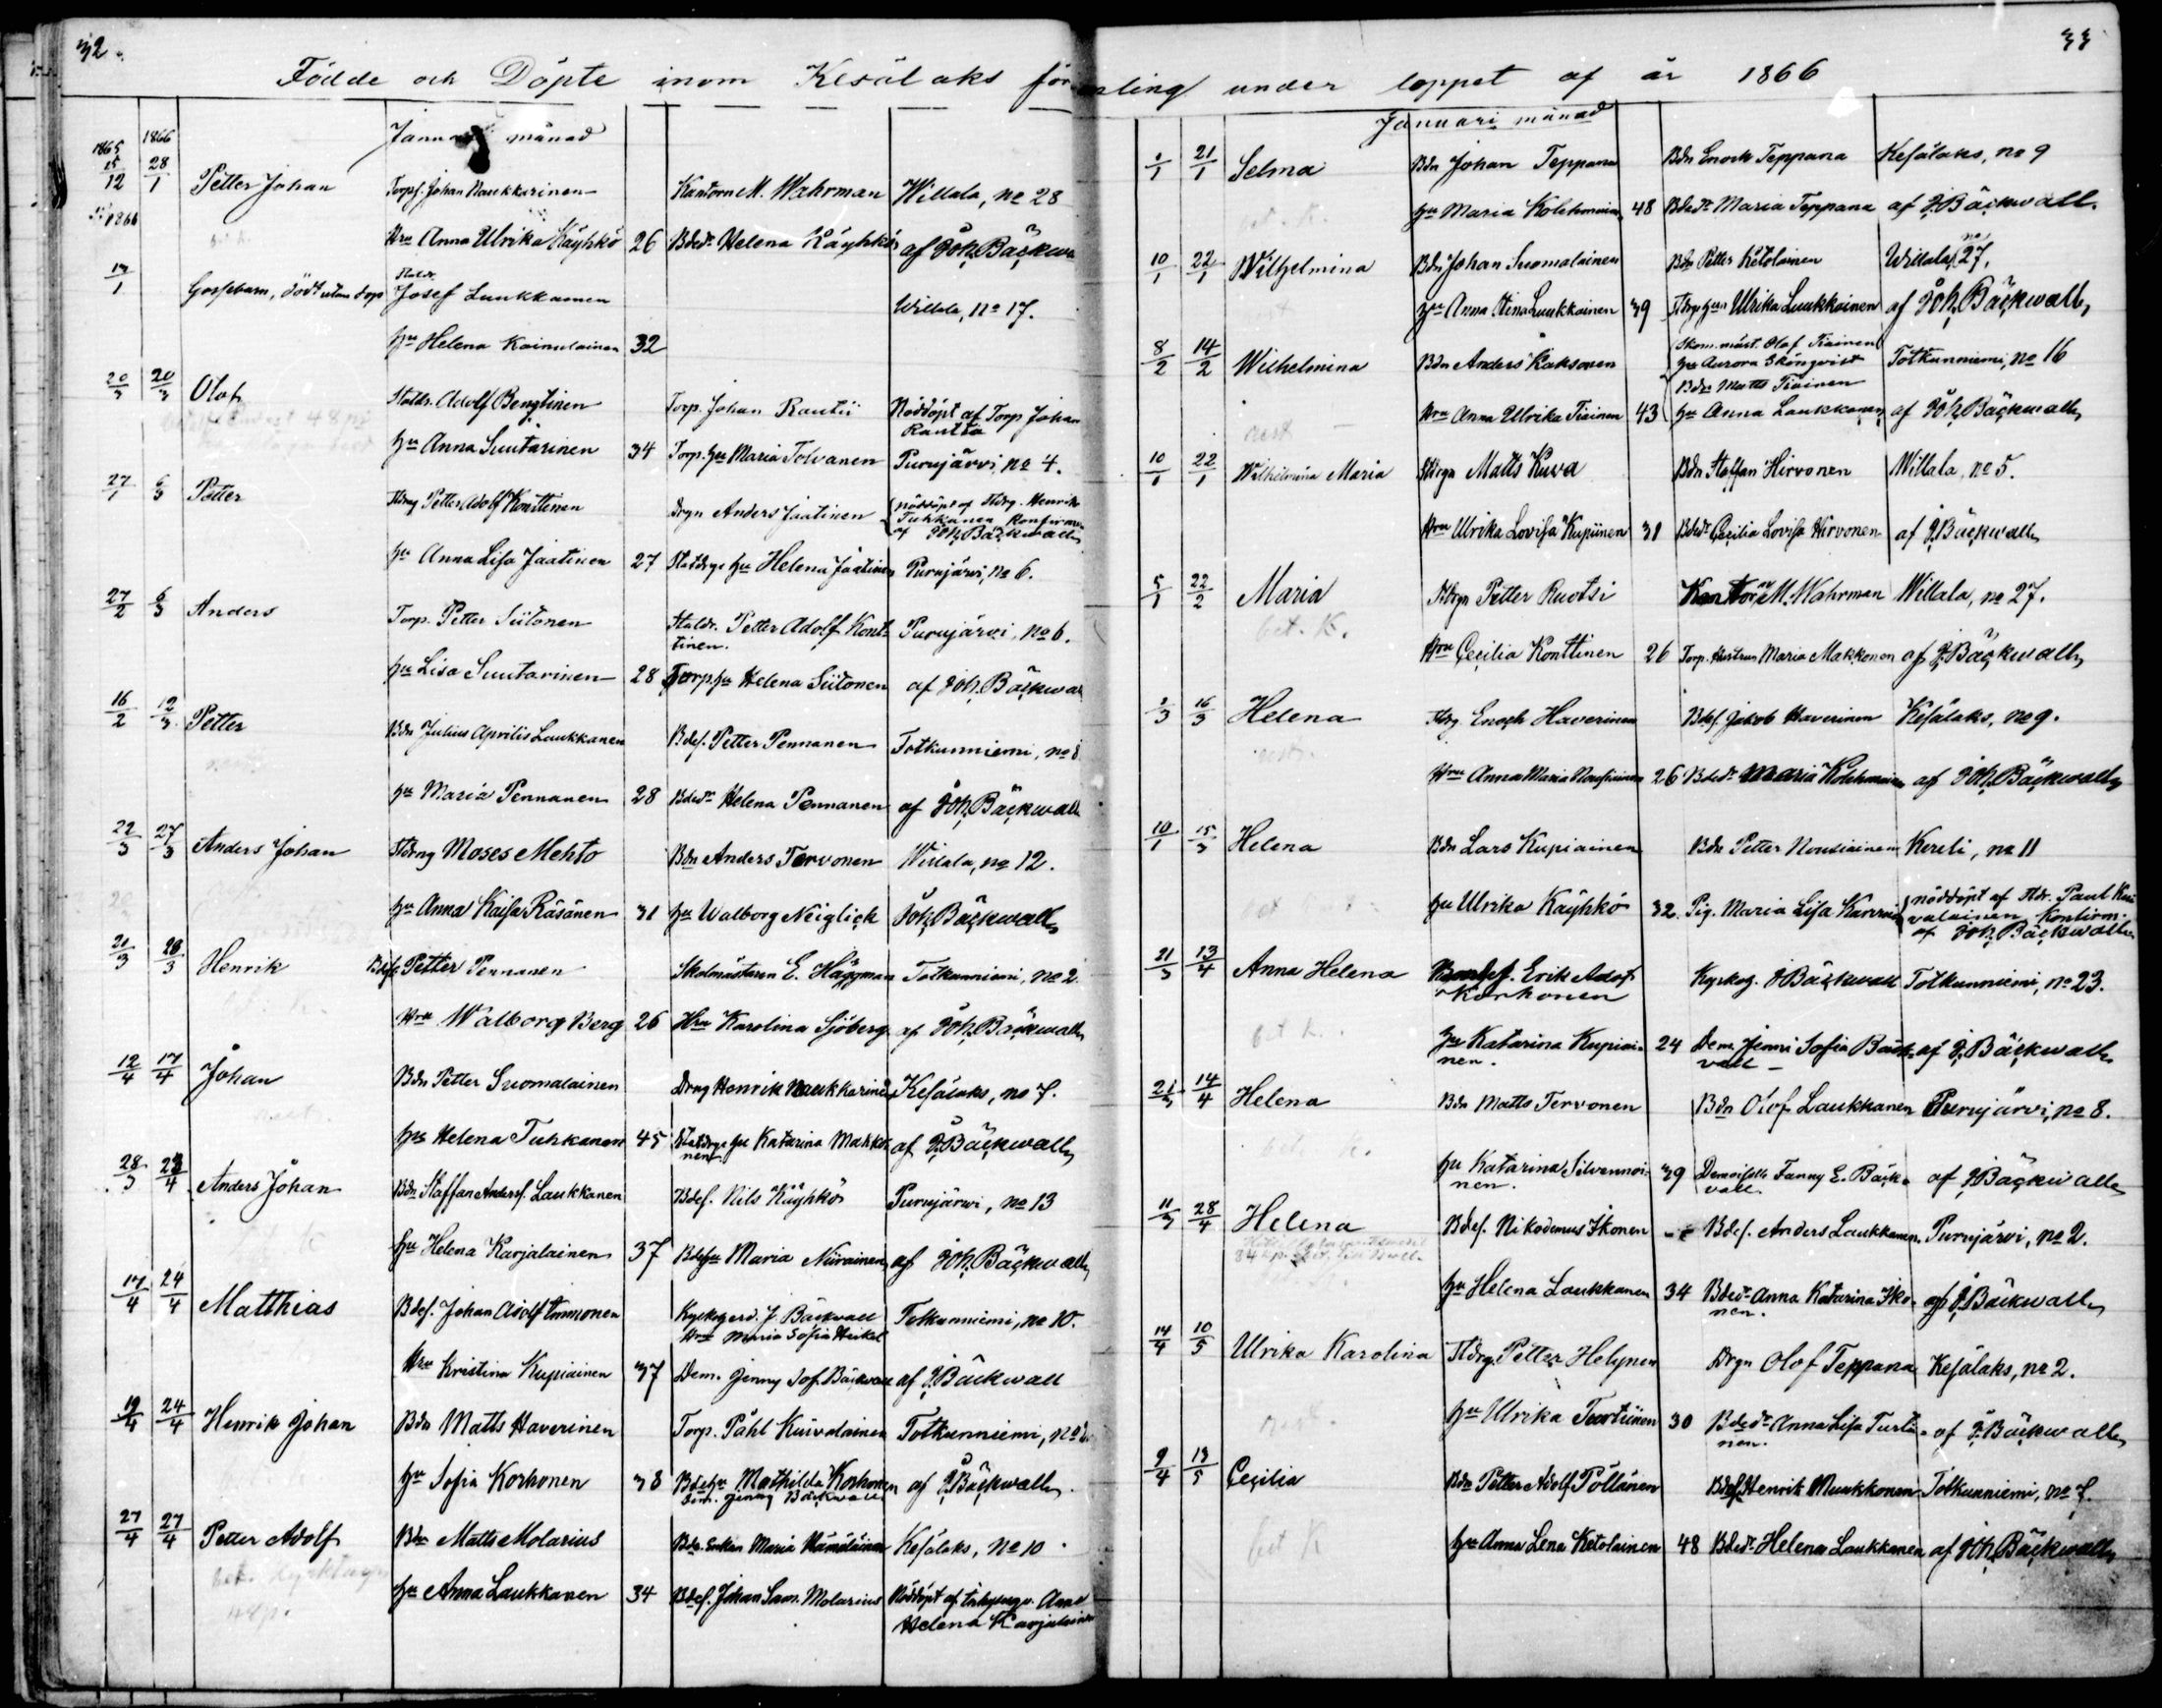 32.
Födde och Döpte inom Kesälaks
Januari månad
1865 1866
15/12 28/1 Petter Johan Torpf. Johan Naukkarinen Kantorn M. Wahrman Willala, no 28
1866
Hru Anna Ulrika Käyhkö 26 Bdedr Helena Käyhkö af Joh. Bäckwa
Gossebarn, död utan dop Josef Luukkainen Willala, No 17.
hu Helena Kainulainen 32
20/3 Olof Statdr. Adolf Bengtinen Torp. Johan Rautii Nöddöpt af Torp Johan
Rautia
hu Anna Suutarinen 34 Torp. hu Maria Tolvanen Purujärvi No 4.
27/1 6/3 Petter Stdrng Petter Adolf Konttinen Drgn Anders Jaatinen nöddöpt af Stdrg. Henrik
Tuhkanen Konfirm
af Joh. Bäckwall
hu Anna Lisa Jaatinen 27 Statdrgs hu Helena Jaatinen Purujärvi, No 6.
27/2 6/3 Anders Torp. Petter Siitonen Staldr. Petter Adolf Kont-
tinen. Purujärvi, No 6.
hu Lisa Suutarinen 28 Torp. hu Helena Siitonen af Joh. Bäckwa
16/2 12/3 Petter Bdn Julius Aprilis Laukkanen Bdes. Petter Pennanen Totkunniemi, no 8
hu Maria Pennanen 28 Bdedr Helena Pennanen af Joh. Bäckwall
22/3 27/3 Anders Johan Stdrng Moses Mehto Bdn Anders Tervonen Willala, no 12.
hu Anna Kaisa Räsänen 31 hu Walborg Neiglick Joh. Bäckwall
21/3 28/3 Henrik Bdes Petter Pennanen Skolmästaren E. Häggman Totkunniemi, no 2
Hru Walborg Berg 26 Hru Karolina Sjöberg af Joh. Bäckwall
12/4 17/4 Johan Bdn Petter Suomalainen Drng Henrik Naukkarinen Kesälaks, no 7.
hu Helena Tuhkanen 45 Statdrgs hu Katarina Makko-
nen af J. Bäckwall
28/3 23/4 Anders Johan Bdn Staffan Anders. Laukkanen Bdes. Nils Käyhkö Purujärvi, no 13
hu Helena Karjalainen 37 Bdes hu Maria Niirainen af Joh. Bäckwall
17/4 24/4 Matthias Bdes. Johan Adolf Immonen Kyrkoherd. J. Bäckwall
Hru Maria Sofia Heikel Totkunniemi, no 10.
Hru Kristina Kupiainen 37 Dem. Jenny Sof. Bäckwall af J. Bäckwall
19/4 24/4 Henrik Johan Bdn Matts Haverinen Torp. Påhl Kuivalainen Totkunniemi, no
hu Sofia Korhonen 38 Bdes hu Mathilda Korhonen
Dem. Jenny Bäckwall af J. Bäckwall.
27/4 27/4 Petter Adolf Bdn Matts Molarius Bde. Enkan Maria Hämäläinen Kesälaks, No 10
hu Anna Laukkanen 34 Bdes. Johan Sam. Molarius Nöddöpt af Anna
Helena Karjalainen
33
under loppet af år 1866
Januari månad
1/1 21/1 Selma Bdn Johan Teppana Bdn Enock Teppana Kesälaks, no 9
bet. K. hu Maria Kolehmainen 48 Bdedr Maria Teppana af J. Bäckwall.
10/1 22/1 Wilhelmina Bdn Johan Suomalainen Bdn Petter Ketolainen Willala, no 27.
hu Anna Stina Luukkainen 39 Stdrgs hu Ulrika Luukkainen af Joh. Bäckwall
8/2 14/2 Wilhelmina Bdn Anders Kaksonen Skom. mäst. Olof Tiainen
hu Aurora Skönqvist
Bdn Matts Tiainen Totkunniemi, no 16
rest Hru Anna Ulrika Tiainen 43 hu Anna Laukkanen af Joh. Bäckwall
10/1 22/1 Wilhelmina Maria Stdrgn Matts Kuva Bdn Staffan Hirvonen Willala, no 5.
Hru Ulrika Lovisa Kupiinen 31 Bdedr Cecilia Lovisa Hirvonen af J. Bäckwall
5/1 22/2 Maria Stdrgn Petter Ruotsi Kantorn M. Wahrman Willala, no 27.
bet. K.
Hru Cecilia Konttinen 26 Torp. Hustrun Maria Makkonen af J. Bäckwall
2/3 16/3 Helena Stdrg. Enoch Haverinen Bdes. Jakob Haverinen Kesälaks, no 9.
Hru Anna Maria Nousiainen 26 Bdedr Maria Kolehmainen af Joh. Bäckwall
10/1 15/3 Helena Bdn Lars Kupiainen Bdn Petter Nousiainen Kereli, no 11
hu Ulrika Käyhkö 32 Pig. Maria Lisa nöddöpt af Stdr. Paul Kui-
valainen Konfirm.
af Joh. Bäckwall
21/3 13/4 Anna Helena Bondes. Erik Adof
Korhonen Kyrkog. J Bäckwall Totkunniemi, no 23.
bet K. hu Katarina Kupiai-
nen. 24 Dem. Jenni Sofia Bäck-
wall af J. Bäckwall
21/3 14/4 Helena Bdn Matts Tervonen Bdn Olof Laukkanen Purujärvi, no 8.
bet. K. hu Katarina Silvennoi-
nen. 39 Demoiselle Fanny E. Bäck-
wall. af J Bäckwall
11/3 28/4 Helena Bdes. Nikodemus Ikonen Bdes. Anders Laukkanen Purujärvi, no 2.
hu Helena Laukkanen 34 Bdedr Anna Katarina Iko-
nen. af J. Bäckwall
14/4 10/5 Ulrika Karolina Stdrg. Petter Helynen Drgn Olof Teppana Kesälaks, no 2.
rest. hu Ulrika Turtiinen 30 Bdedr Anna Lisa Turti-
nen. af J. Bäckwall
9/4 13/5 Cecilia Bdn Petter Adolf Pöllänen Bdes Henrik Muukkonen Totkunniemi, no 7.
bet K hu Anna Lena Ketolainen 48 Bdedr Helena Laukkanen af Joh. Bäckwall